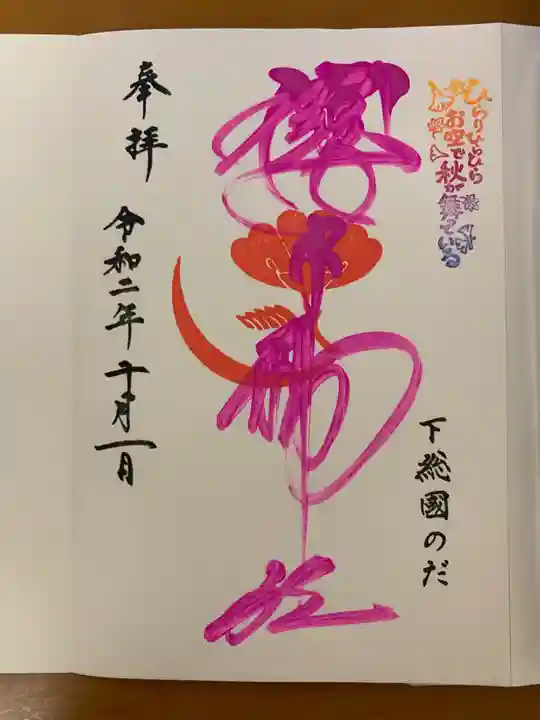 ひらりひらひら
お空で秋が
舞っている
下総國のだ
櫻木神社
奉拝
令和二年十一月一日